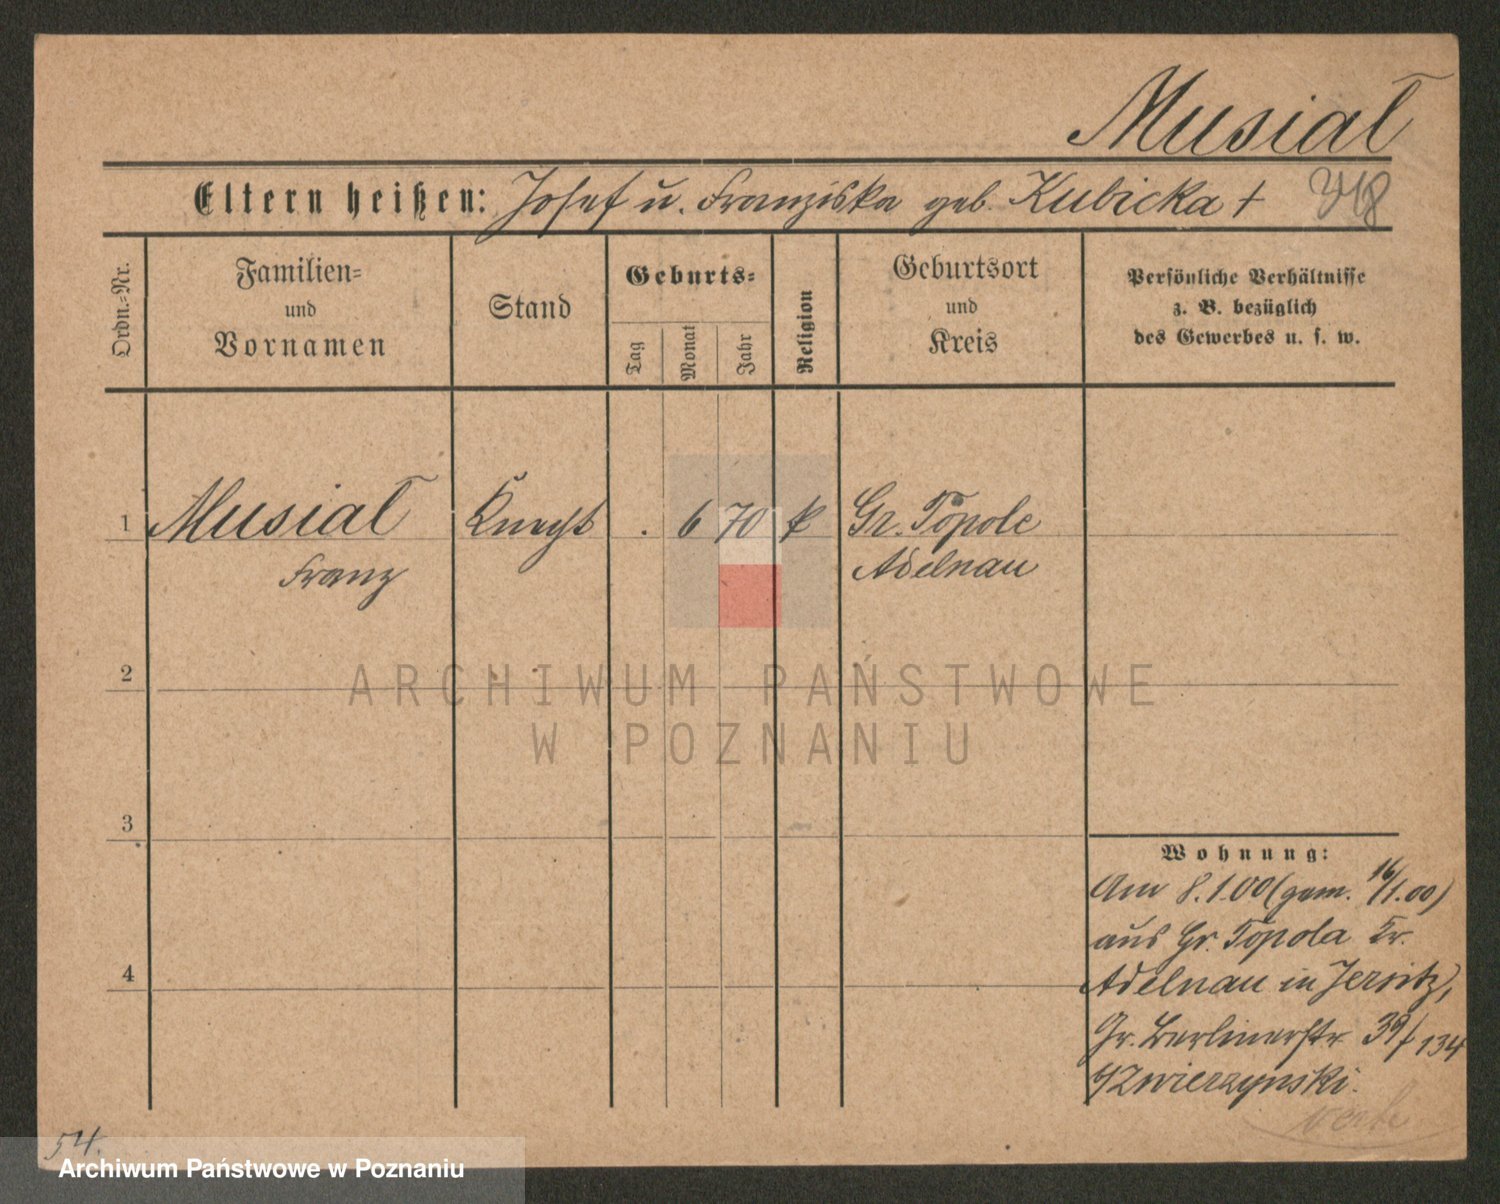 Musial
Eltern heißen: Josef u. Franziska geb. Kubicka †
Ordn.-Nr.
Familien-
und
Vornamen
Stand
Geburts-
Tag
Monat
Jahr
Religion
Geburtsort
und
Kreis
Persönliche Verhältnisse
z. B. bezüglich
des Gewerbes u. s. w.
1 Musial Knecht . 6 70 k Gr. Topole
Franz Adelnau
2
ARCHIWUM PAŃSTWOWE
W POZNANIU
3
Wohnung:
Am 8.1.00 (gem. 16/1.00)
aus Gr. Topola Kr.
Adelnau in Jersitz,
Gr. Berlinerstr. 39/134
Zwierzynski.
4
54.
Archiwum Państwowe w Poznaniu